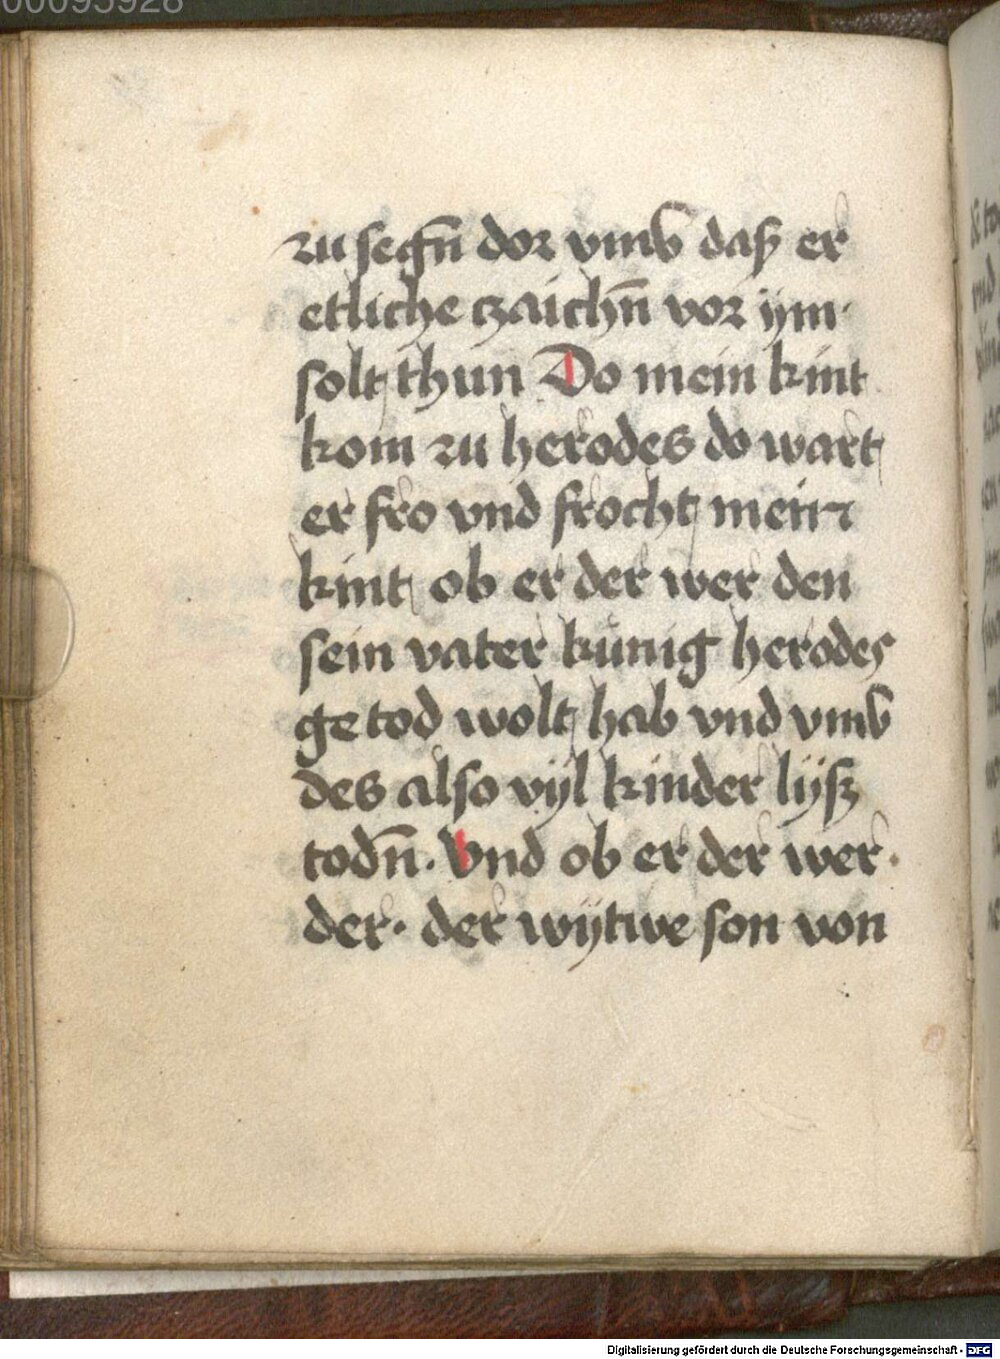 00095928
zu segn̄ dor vmb daſz er
etliche czaichn̄ vor ÿm·
solt thun Do mein kint
kom zu herodes do wart
er fro vnd frocht mein
kint ob er der wer den
sein vater kunig herodes
getod wolt hab vnd vmb
des also vyl kinder lÿſz
todn̄. Vnd ob er der wer·
der· der wÿtwe son von
Digitalisierung gefördert durch die Deutsche Forschungsgemeinschaft - DFG